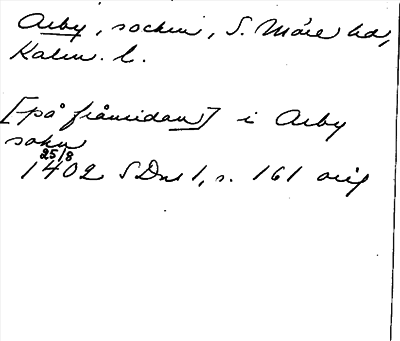 Arby, socken, S. Möre hd,
Kalm. l.
[på frånsidan] i Arby
sokn
25/8
1402 SDns 1, s. 161 orig